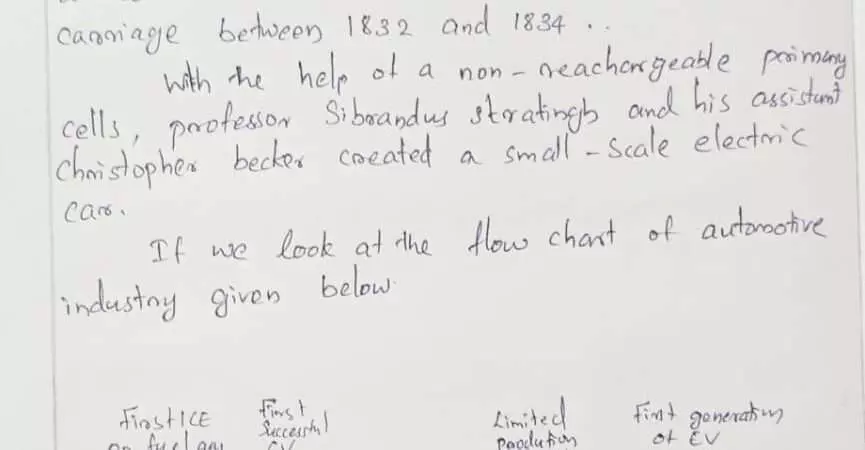 carriage between 1832 and 1834 ..
With the help of a non-reachargeable primary
cells, professor Sibrandus stratingh and his assistant
christopher becker created a small-scale electric
car.
If we look at the flow chart of automotive
industry given below.
First ICE First Limited First generation
on fuel gas Successful Production of EV
EV